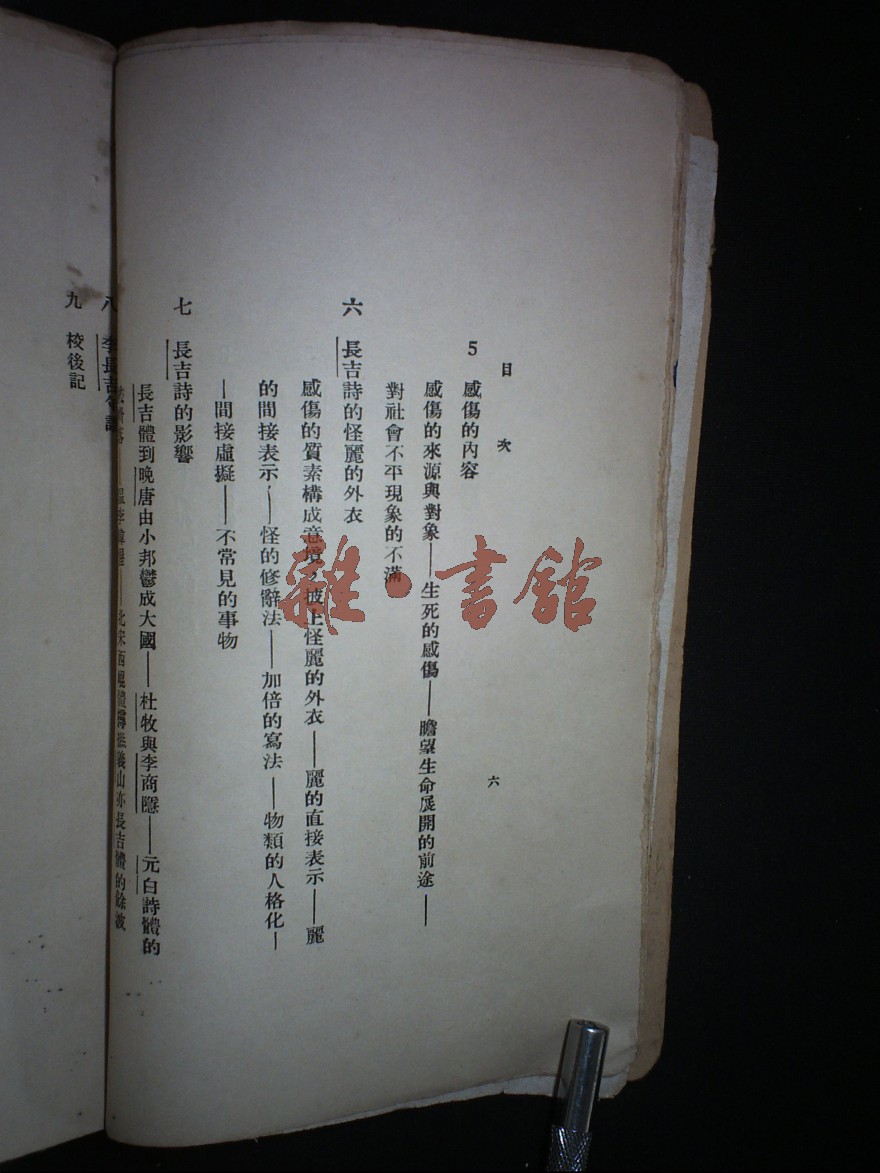 目次
六
5 感傷的內容
感傷的來源與對象——生死的感傷——瞻望生命展開的前途——
對社會不平現象的不滿
六 長吉詩的怪麗的外衣
感傷的質素構成意境，披上怪麗的外衣——麗的直接表示——麗
的間接表示，——怪的修辭法——加倍的寫法——物類的人格化—
—間接虛擬——不常見的事物
七 長吉詩的影響
長吉體到晚唐由小邦鬱成大國——杜牧與李商隱——元白詩體的
北宋西崑體撏撦義山亦長吉體的餘波
八 李長吉年譜
九 校後記
雜·書館